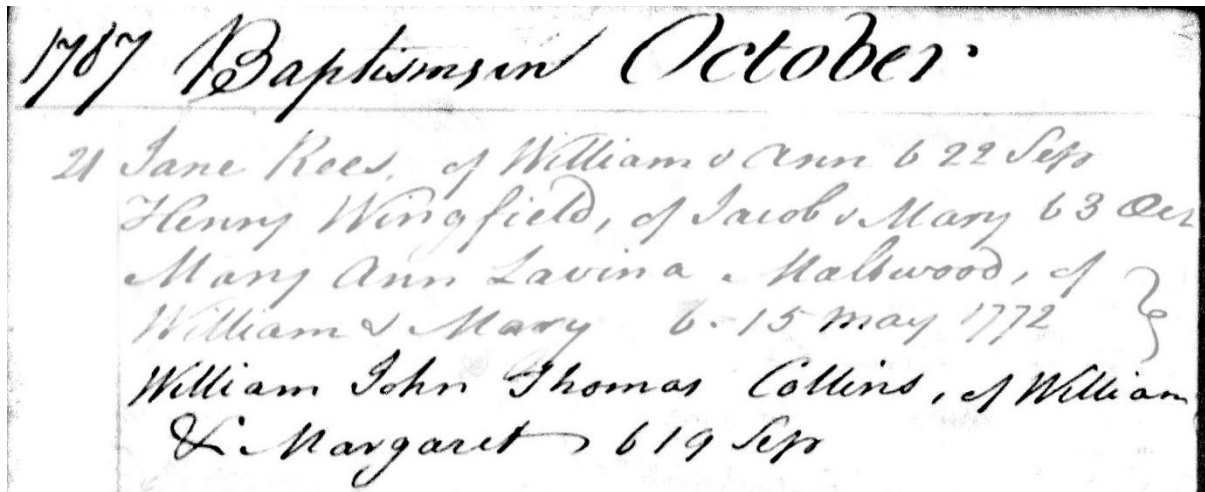 1787 Baptisms in October
21 Jane Rees, of William & Ann b 22 Sep
Henry Wingfield, of Jacob & Mary b 3 Oct
Mary Ann Lavina Maltwood, of
William & Mary b. 15 May 1772
William John Thomas Collins, of William
& Margaret b 19 Sep